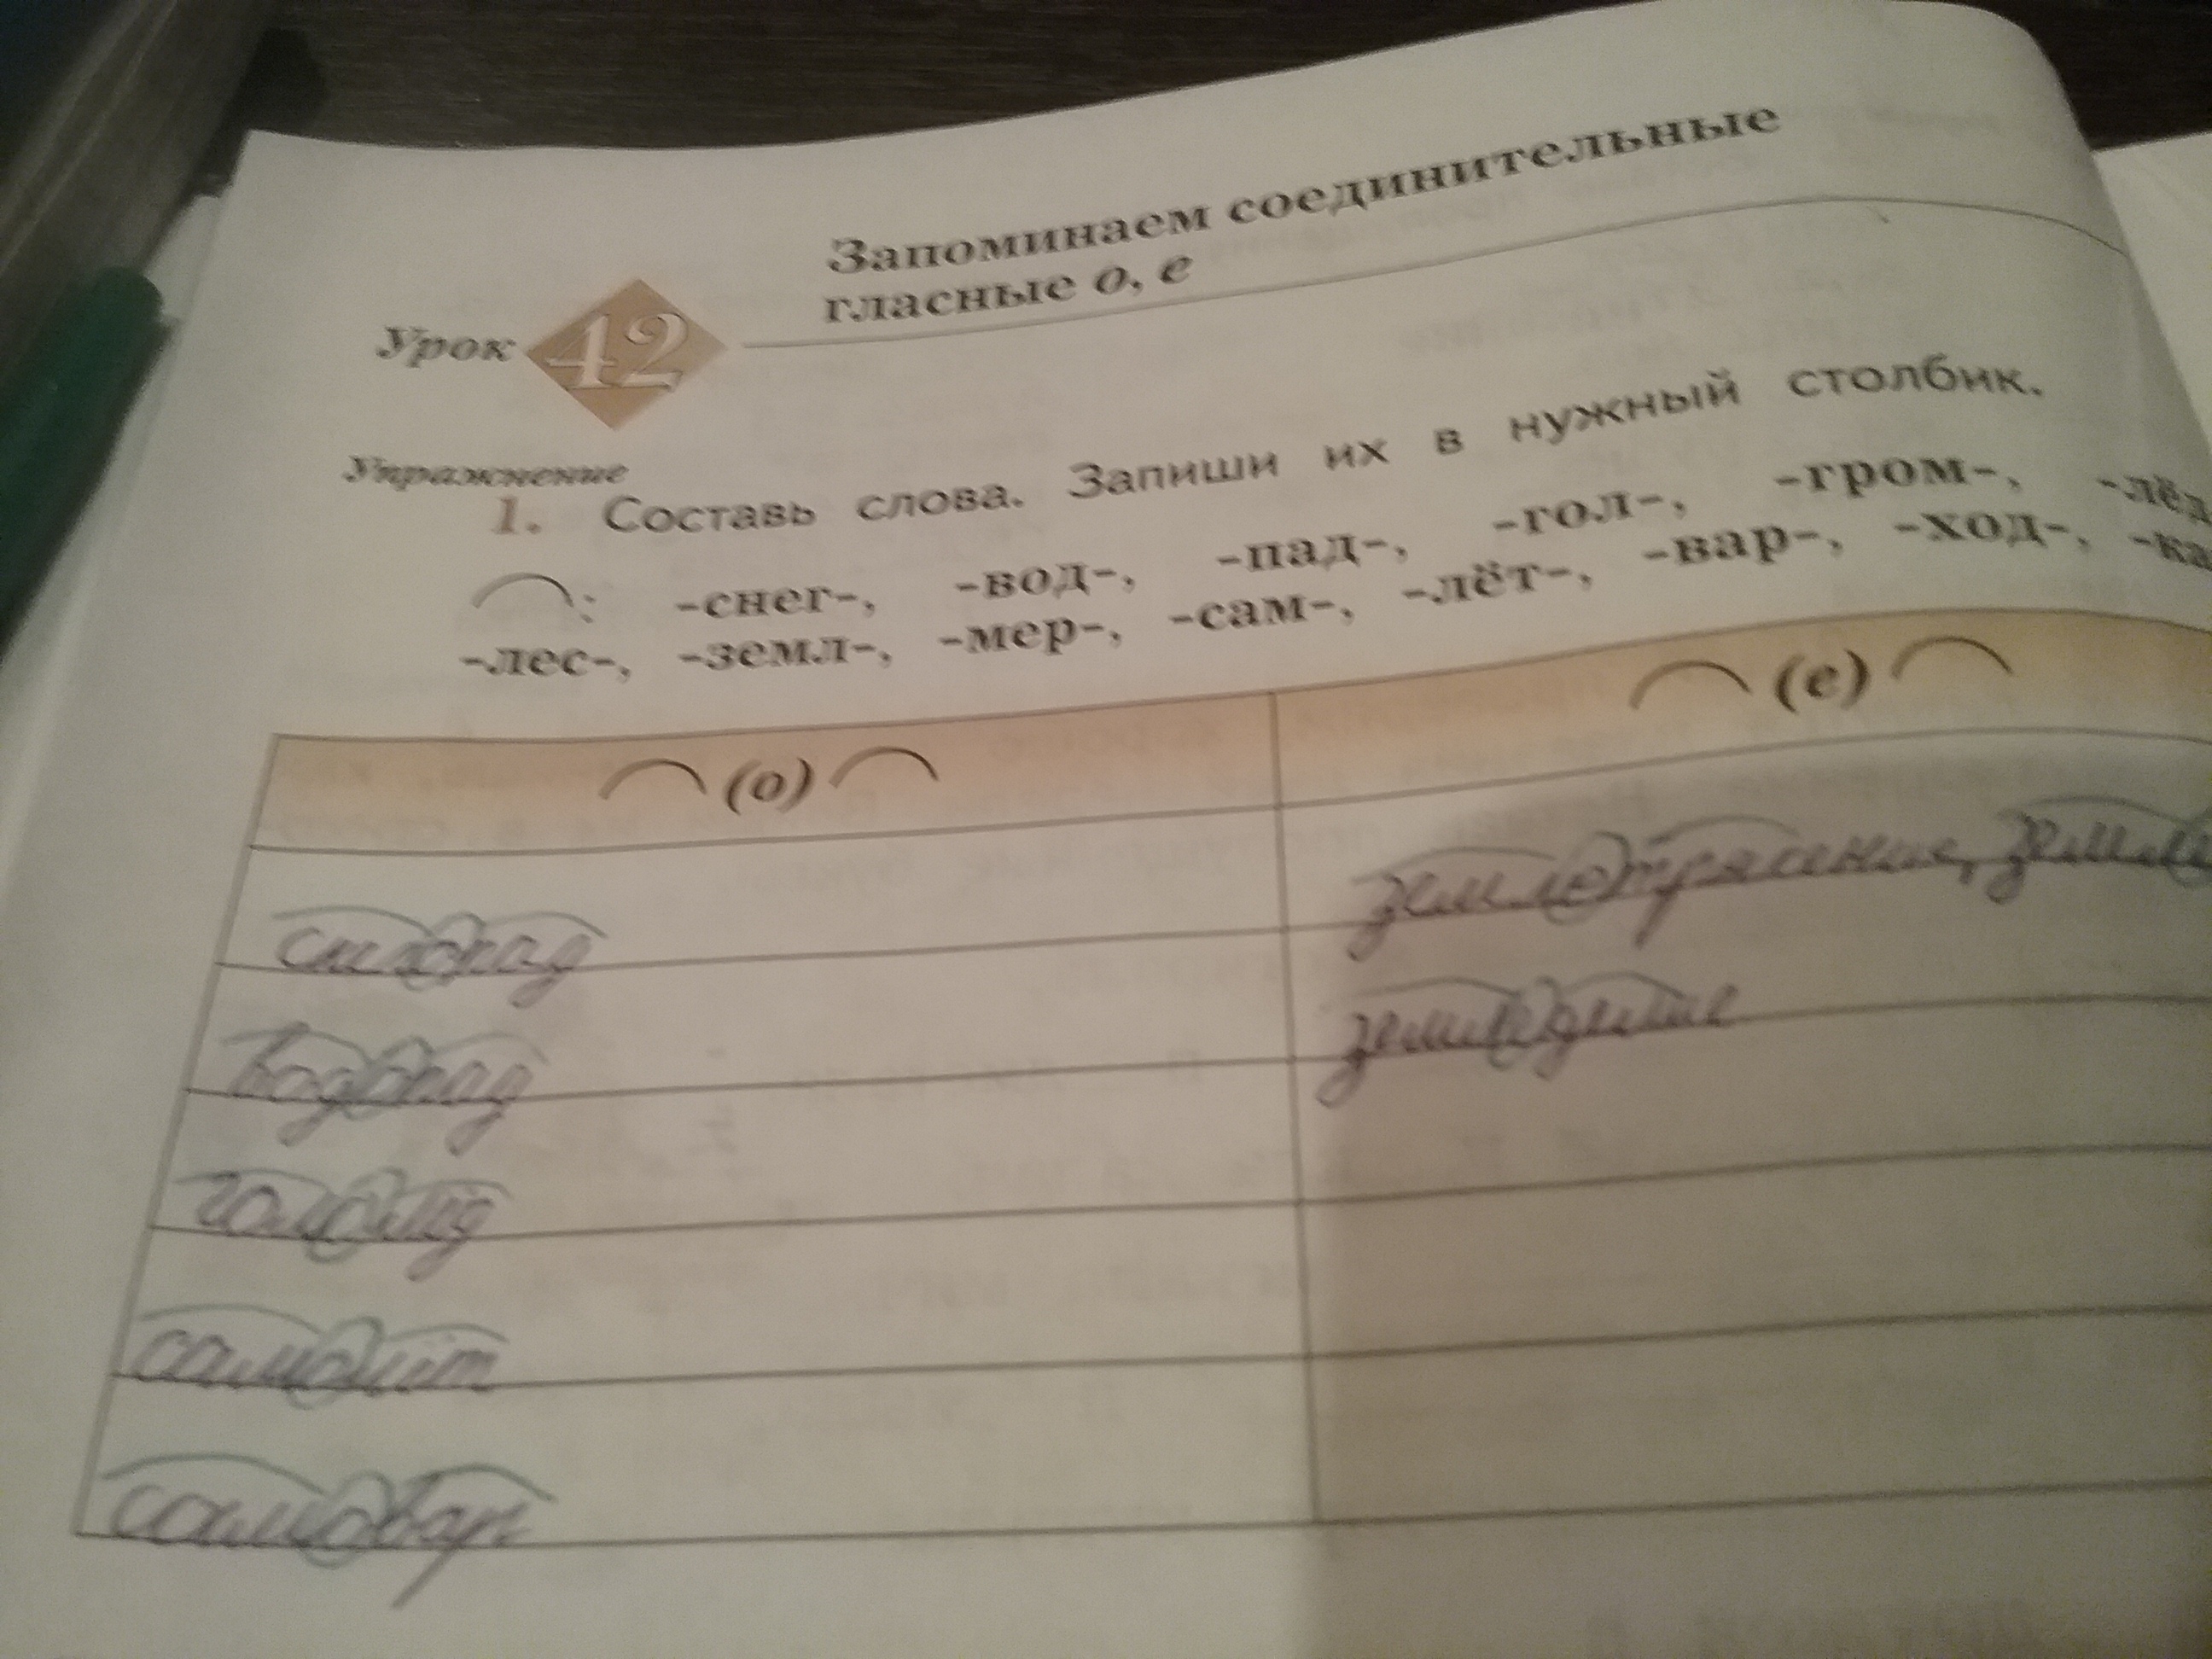 Запоминаем соединительные
гласные о, е
Урок 42
Упражнение
1. Составь слова. Запиши их в нужный столбик.
: -снег-, -вод-, -пад-, -гол-, -гром-, -лёд
-лес-, -земл-, -мер-, -сам-, -лёт-, -вар-, -ход-, -ка
(о) (е)
снегопад землетрясение,
водопад земледелие
гололёд
самолёт
самовар